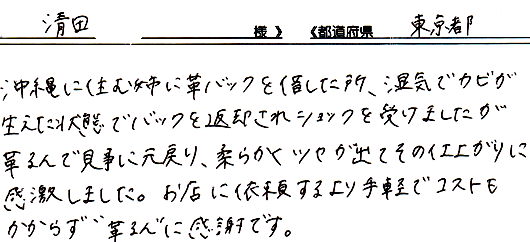 清田 様》 《都道府県 東京都
沖縄に住む姉に革バックを借した所、湿気でカビが
生えた状態でバックを返却されショックを受けましたが
革るんで見事に元戻り、柔らかくツヤが出てその仕上がりに
感激しました。お店に依頼するより手軽でコストも
かからず“革るん”に感謝です。